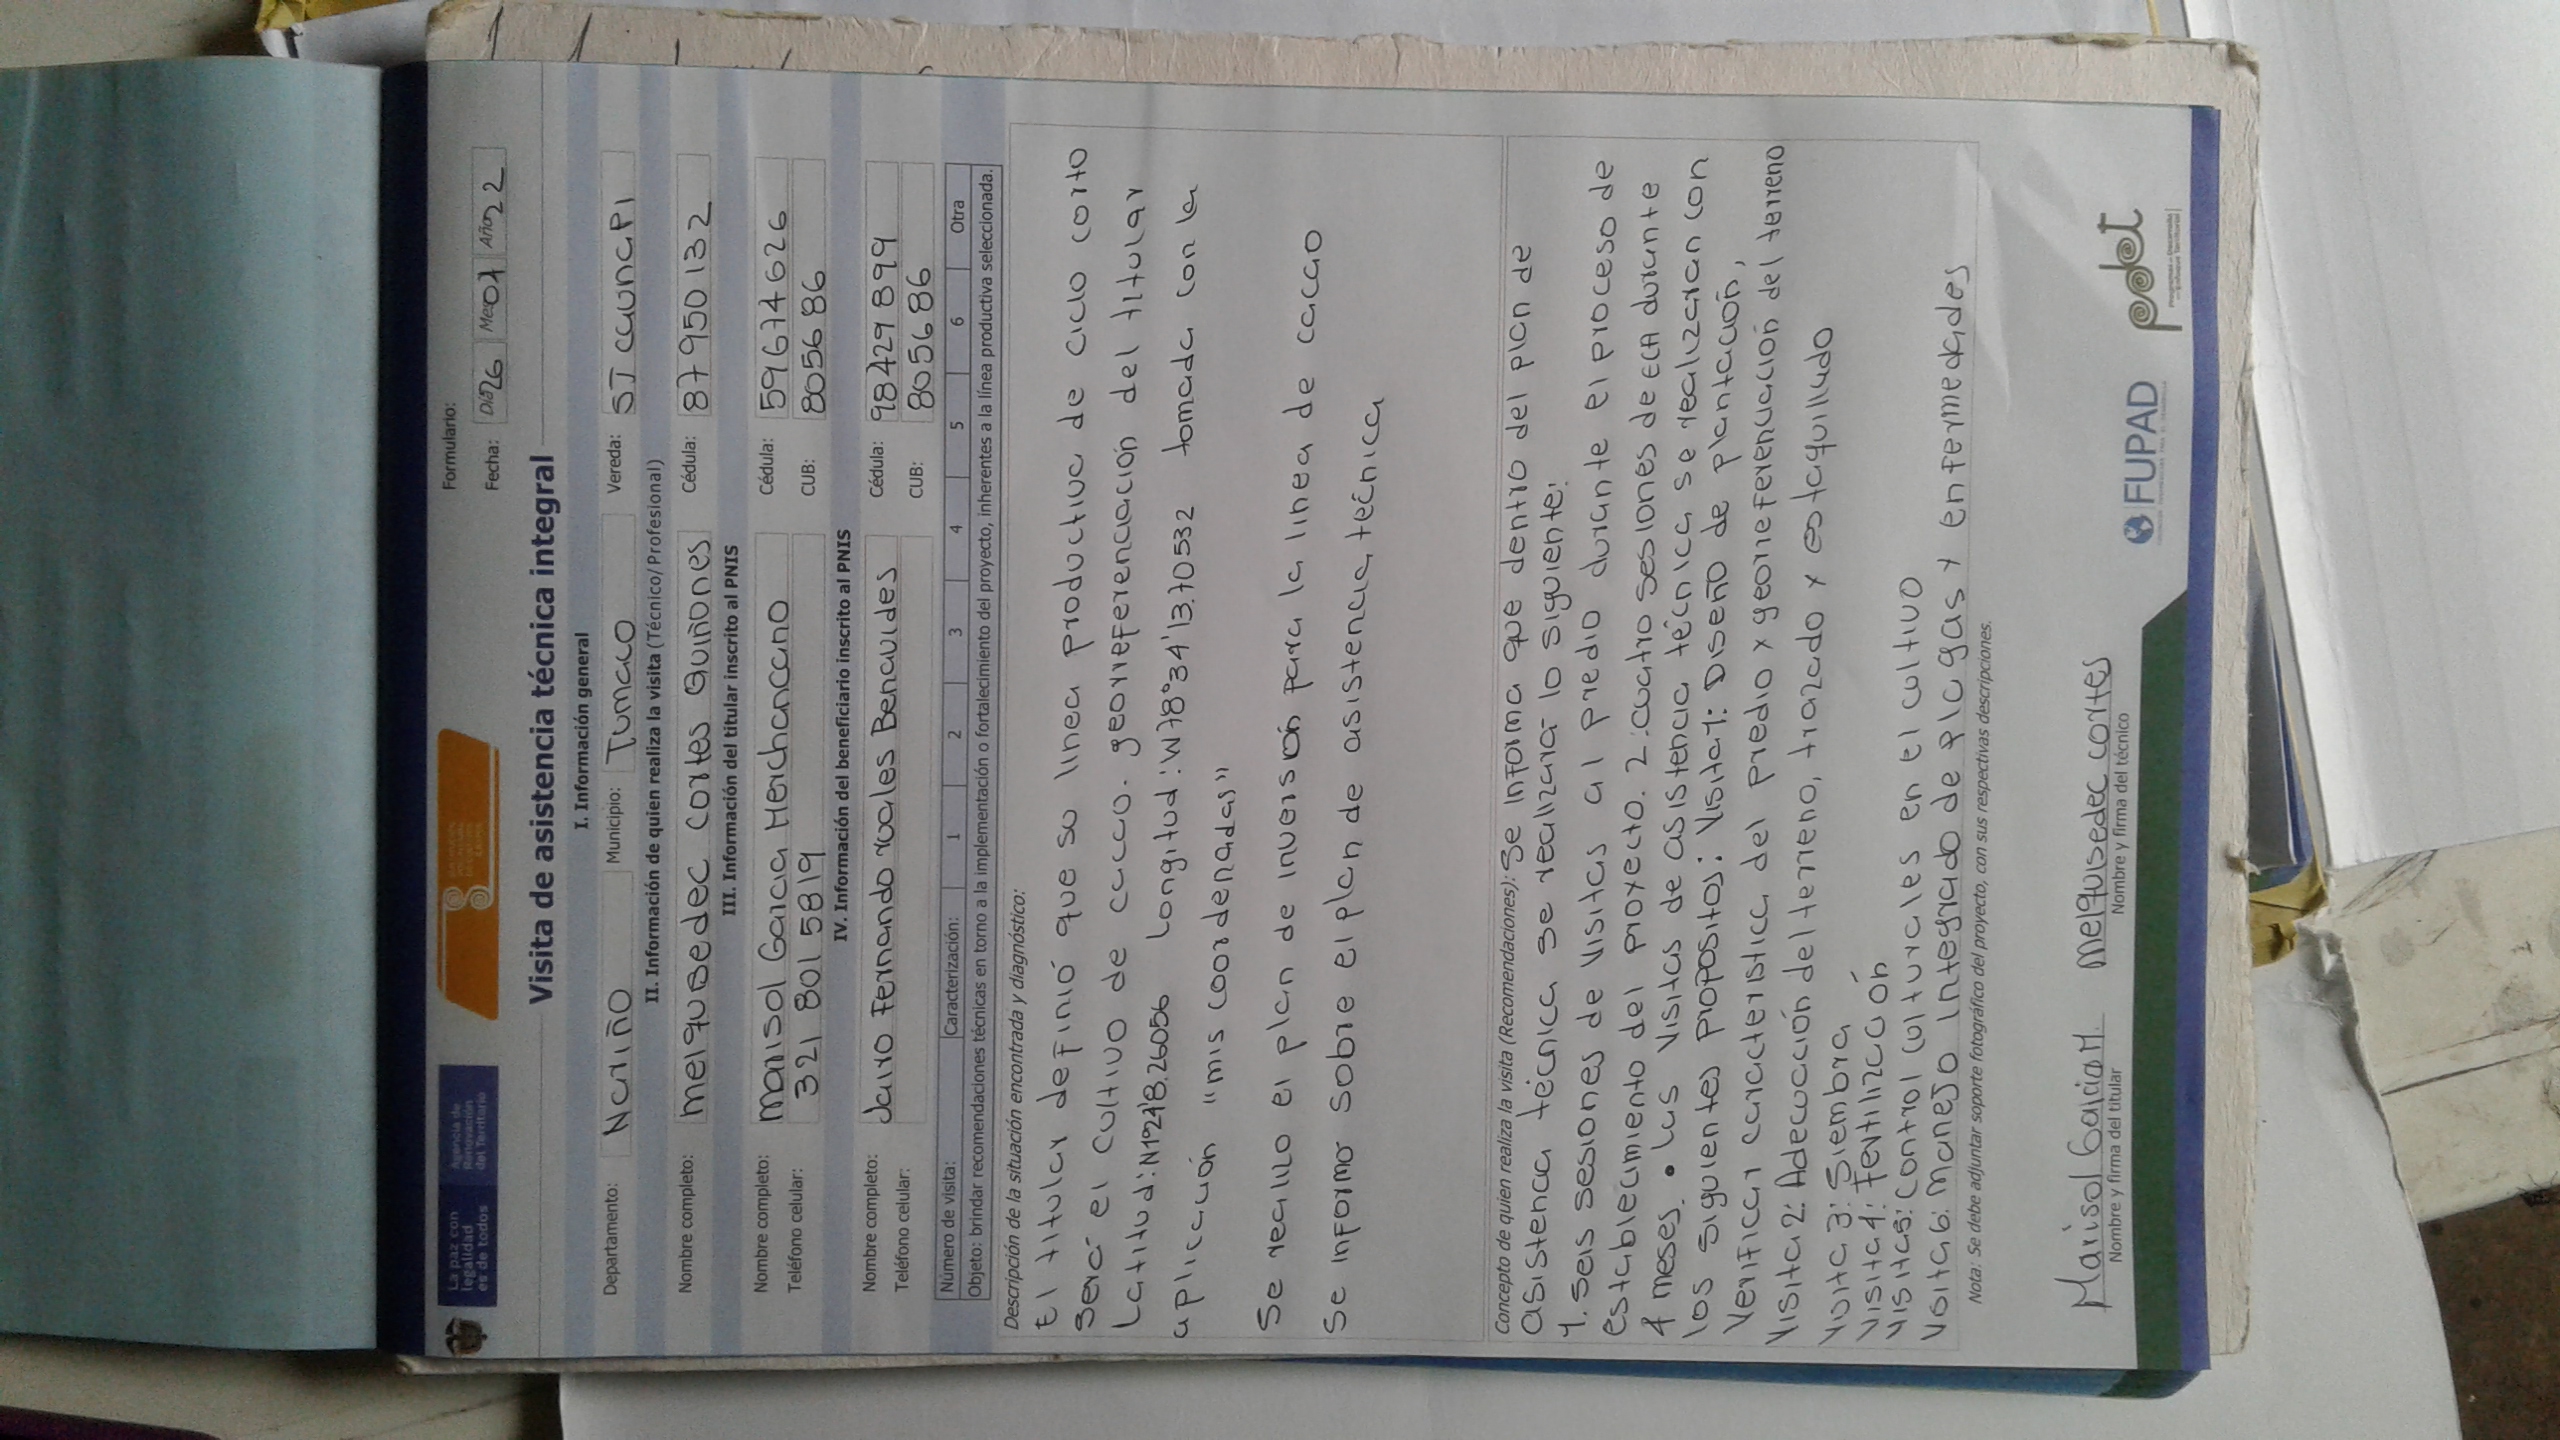 La paz con
legalidad
es de todos
Agencia de
Renovación
del Territorio
Formulario:
Fecha: Día 26 Mes 07 Año 22
Visita de asistencia técnica integral
I. Información general
Departamento: Nariño Municipio: Tumaco Vereda: SJ caunapi
II. Información de quien realiza la visita (Técnico/Profesional)
Nombre completo: melquisedec cortes Quiñones Cédula: 87950132
III. Información del titular inscrito al PNIS
Nombre completo: marisol Garcia Merchancano Cédula: 59674626
Teléfono celular: 321 801 5819 CUB: 805686
IV. Información del beneficiario inscrito al PNIS
Nombre completo: Jairo Fernando rosales Benavides Cédula: 98429899
Teléfono celular: CUB: 805686
Número de visita: Caracterización: 1 2 3 4 5 6 Otra
Objeto: brindar recomendaciones técnicas en torno a la implementación o fortalecimiento del proyecto, inherentes a la línea productiva seleccionada.
Descripción de la situación encontrada y diagnóstico:
El titular definió que so linea productiva de ciclo corto
será el cultivo de cacao. georreferenciación del titular
Latitud: N1°2'18.26056 Longitud: W78°34'13.70532 tomada con la
aplicación "mis coordenadas"
Se realiIo el plan de inversión para la linea de cacao
Se informo sobre el plan de asistencia técnica
Concepto de quien realiza la visita (Recomendaciones): Se informa que dentro del plan de
asistencia técnica se realizara lo siguiente:
1. Seis sesiones de visitas al predio durante el proceso de
establecimiento del proyecto. 2. cuatro sesiones de ECA durante
4 meses. • Las visitas de asistencia técnica se realizaran con
los siguientes propositos: Visita1: Diseño de plantación,
Verificar caracteristica del predio y georreferenciación del terreno
Visita 2: Adecuación del terreno, trazado y estaquillado
Visita 3: Siembra
Visita4: Fertilización
Visita5: Control culturales en el cultivo
Visita6: Manejo integrado de plagas y enfermedades
Nota: Se debe adjuntar soporte fotográfico del proyecto, con sus respectivas descripciones.
Marisol Garcia M. melquisedec cortes
Nombre y firma del titular Nombre y firma del técnico
FUPAD
pdet